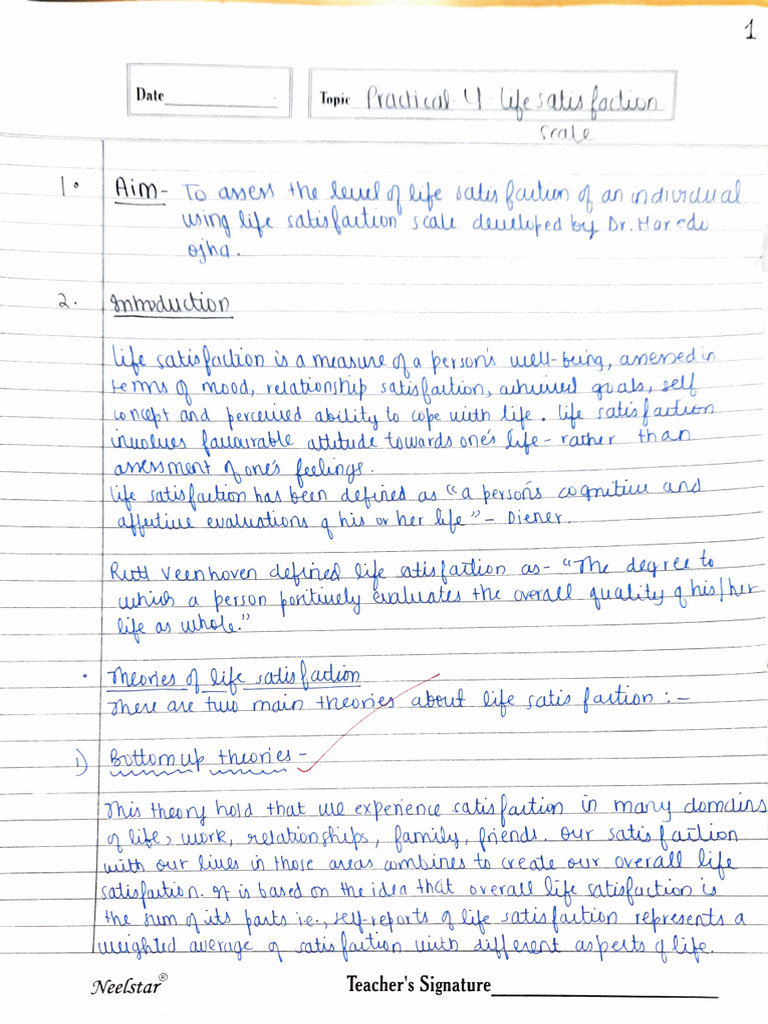 1
Date
Topic Practical 4 Life satisfaction
scale
1. Aim- To assess the level of life satisfaction of an individual
using life satisfaction scale developed by Dr. Haredu
ojha.
2. Introduction
Life satisfaction is a measure of a person's well-being, assessed in
terms of mood, relationship satisfaction, achieved goals, self
concept and perceived ability to cope with life. Life satisfaction
involves favourable attitude towards one's life - rather than
assessment of one's feelings.
Life satisfaction has been defined as "a person's cognitive and
affective evaluations of his or her life" - Diener.
Rutt Veenhoven defined life satisfaction as- "The degree to
which a person positively evaluates the overall quality of his/her
life as whole."
• Theories of life satisfaction
There are two main theories about life satisfaction :-
i) Bottom up theories -
This theory hold that we experience satisfaction in many domains
of life, work, relationships, family, friends. Our satisfaction
with our lives in those areas combines to create our overall life
satisfaction. It is based on the idea that overall life satisfaction is
the sum of its parts i.e., self-reports of life satisfaction represents a
weighted average of satisfaction with different aspects of life.
Neelstar® Teacher's Signature